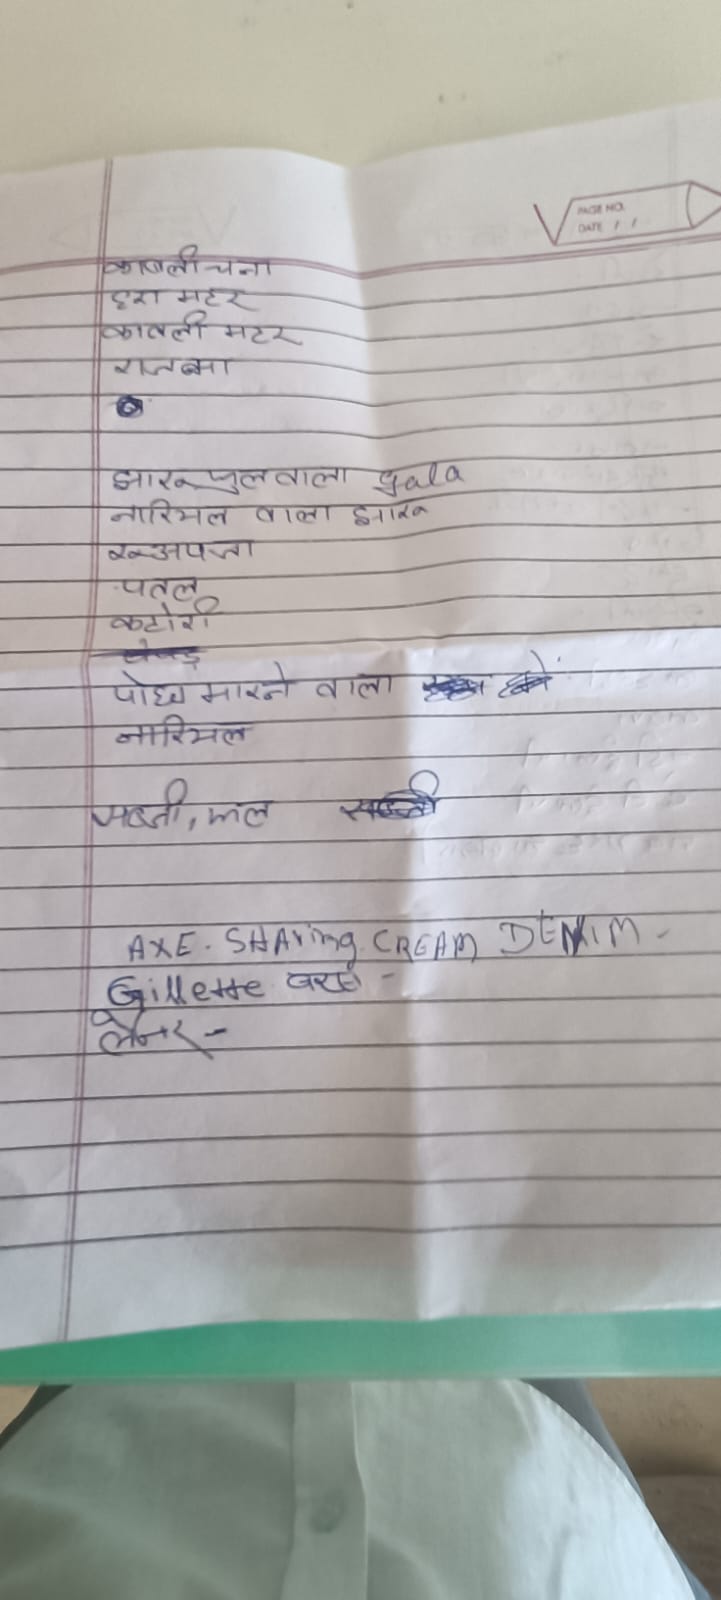 PAGE NO.
DATE / /
काबली चना
हरा मटर
काबली मटर
राजमा
झारू फुल वाला gala
नारियल वाला झारू
पतल
कटोरी
पोछा मारने वाला
नारियल
सब्जी, फल
AXE. SHAVING CREAM DENIM -
Gillette -